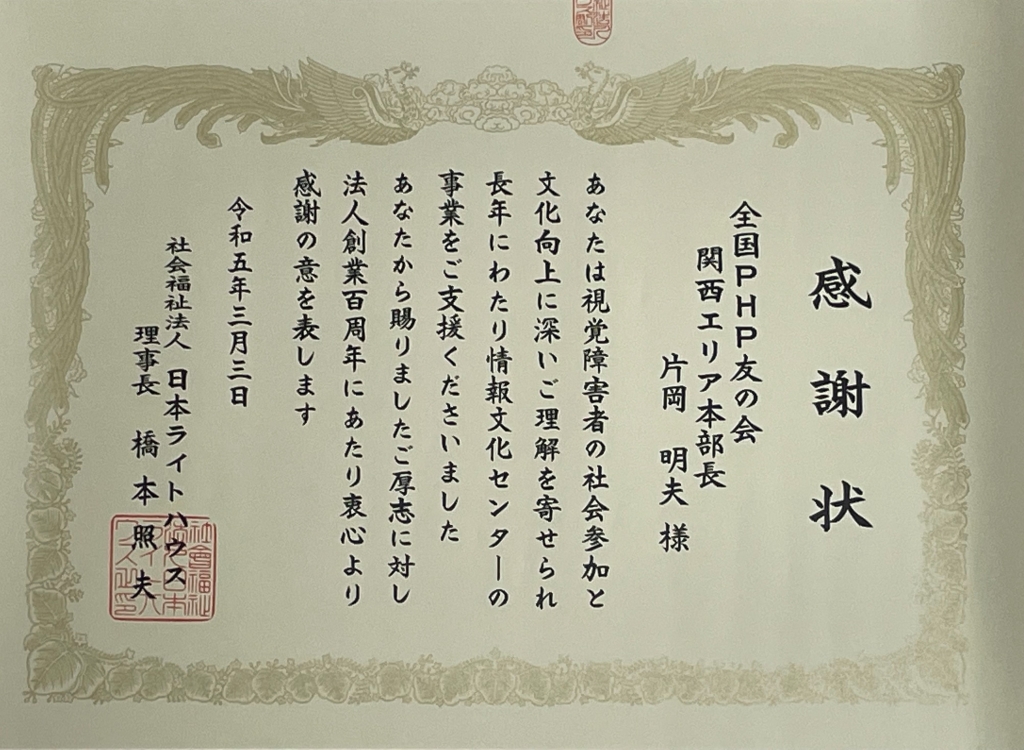 感謝状
全国PHP友の会
関西エリア本部長
片岡 明夫 様
あなたは視覚障害者の社会参加と
文化向上に深いご理解を寄せられ
長年にわたり情報文化センターの
事業をご支援くださいました
あなたから賜りましたご厚志に対し
法人創業百周年にあたり衷心より
感謝の意を表します
令和五年三月三日
社会福祉法人 日本ライトハウス
理事長 橋本照夫